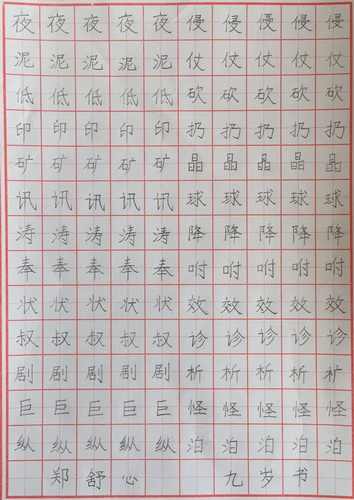 夜夜夜夜夜侵侵侵侵侵
泥泥泥泥泥仗仗仗仗仗
低低低低低砍砍砍砍砍
印印印印印扔扔扔扔扔
矿矿矿矿矿晶晶晶晶晶
讯讯讯讯讯球球球球球
涛涛涛涛涛降降降降降
奉奉奉奉奉咐咐咐咐咐
状状状状状效效效效效
叔叔叔叔叔诊诊诊诊诊
剧剧剧剧剧析析析析析
巨巨巨巨巨怪怪怪怪怪
纵纵纵纵纵泊泊泊泊泊
郑舒心 九岁书